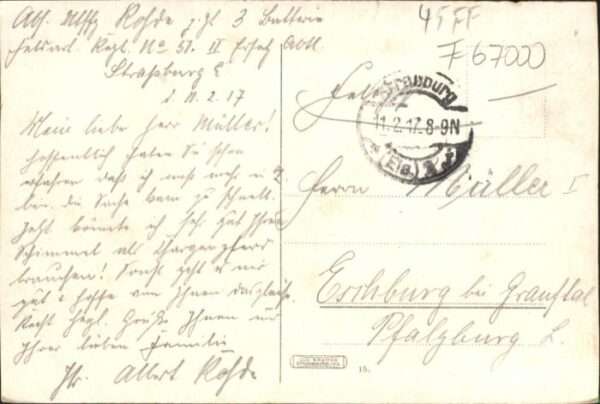 Abs. Uffz Rohde z. Zt 3 Batterie
Feldart. Regt. No 51. II Ersatz Abtl
Straßburg E
d. 11. 2. 17
Mein lieber Herr Müller!
hoffentlich haben Sie schon
erfahren daß ich nicht mehr in
bin. die Sache kam zu schnell.
Jetzt könnte ich sehr gut Ihren
Schimmel als Chargenpferd
brauchen! Sonst geht es mir
gut & hoffe von Ihnen dasgleiche.
Recht herzl. Grüße Ihnen und
Ihrer lieben Familie
Ihr Albert Rohde
45 FF
F 67000
Straßburg
11.2.17. 8-9N
(Els.)
Herrn Müller I
Eschburg bei Graufthal
Pfalzburg L.
15.